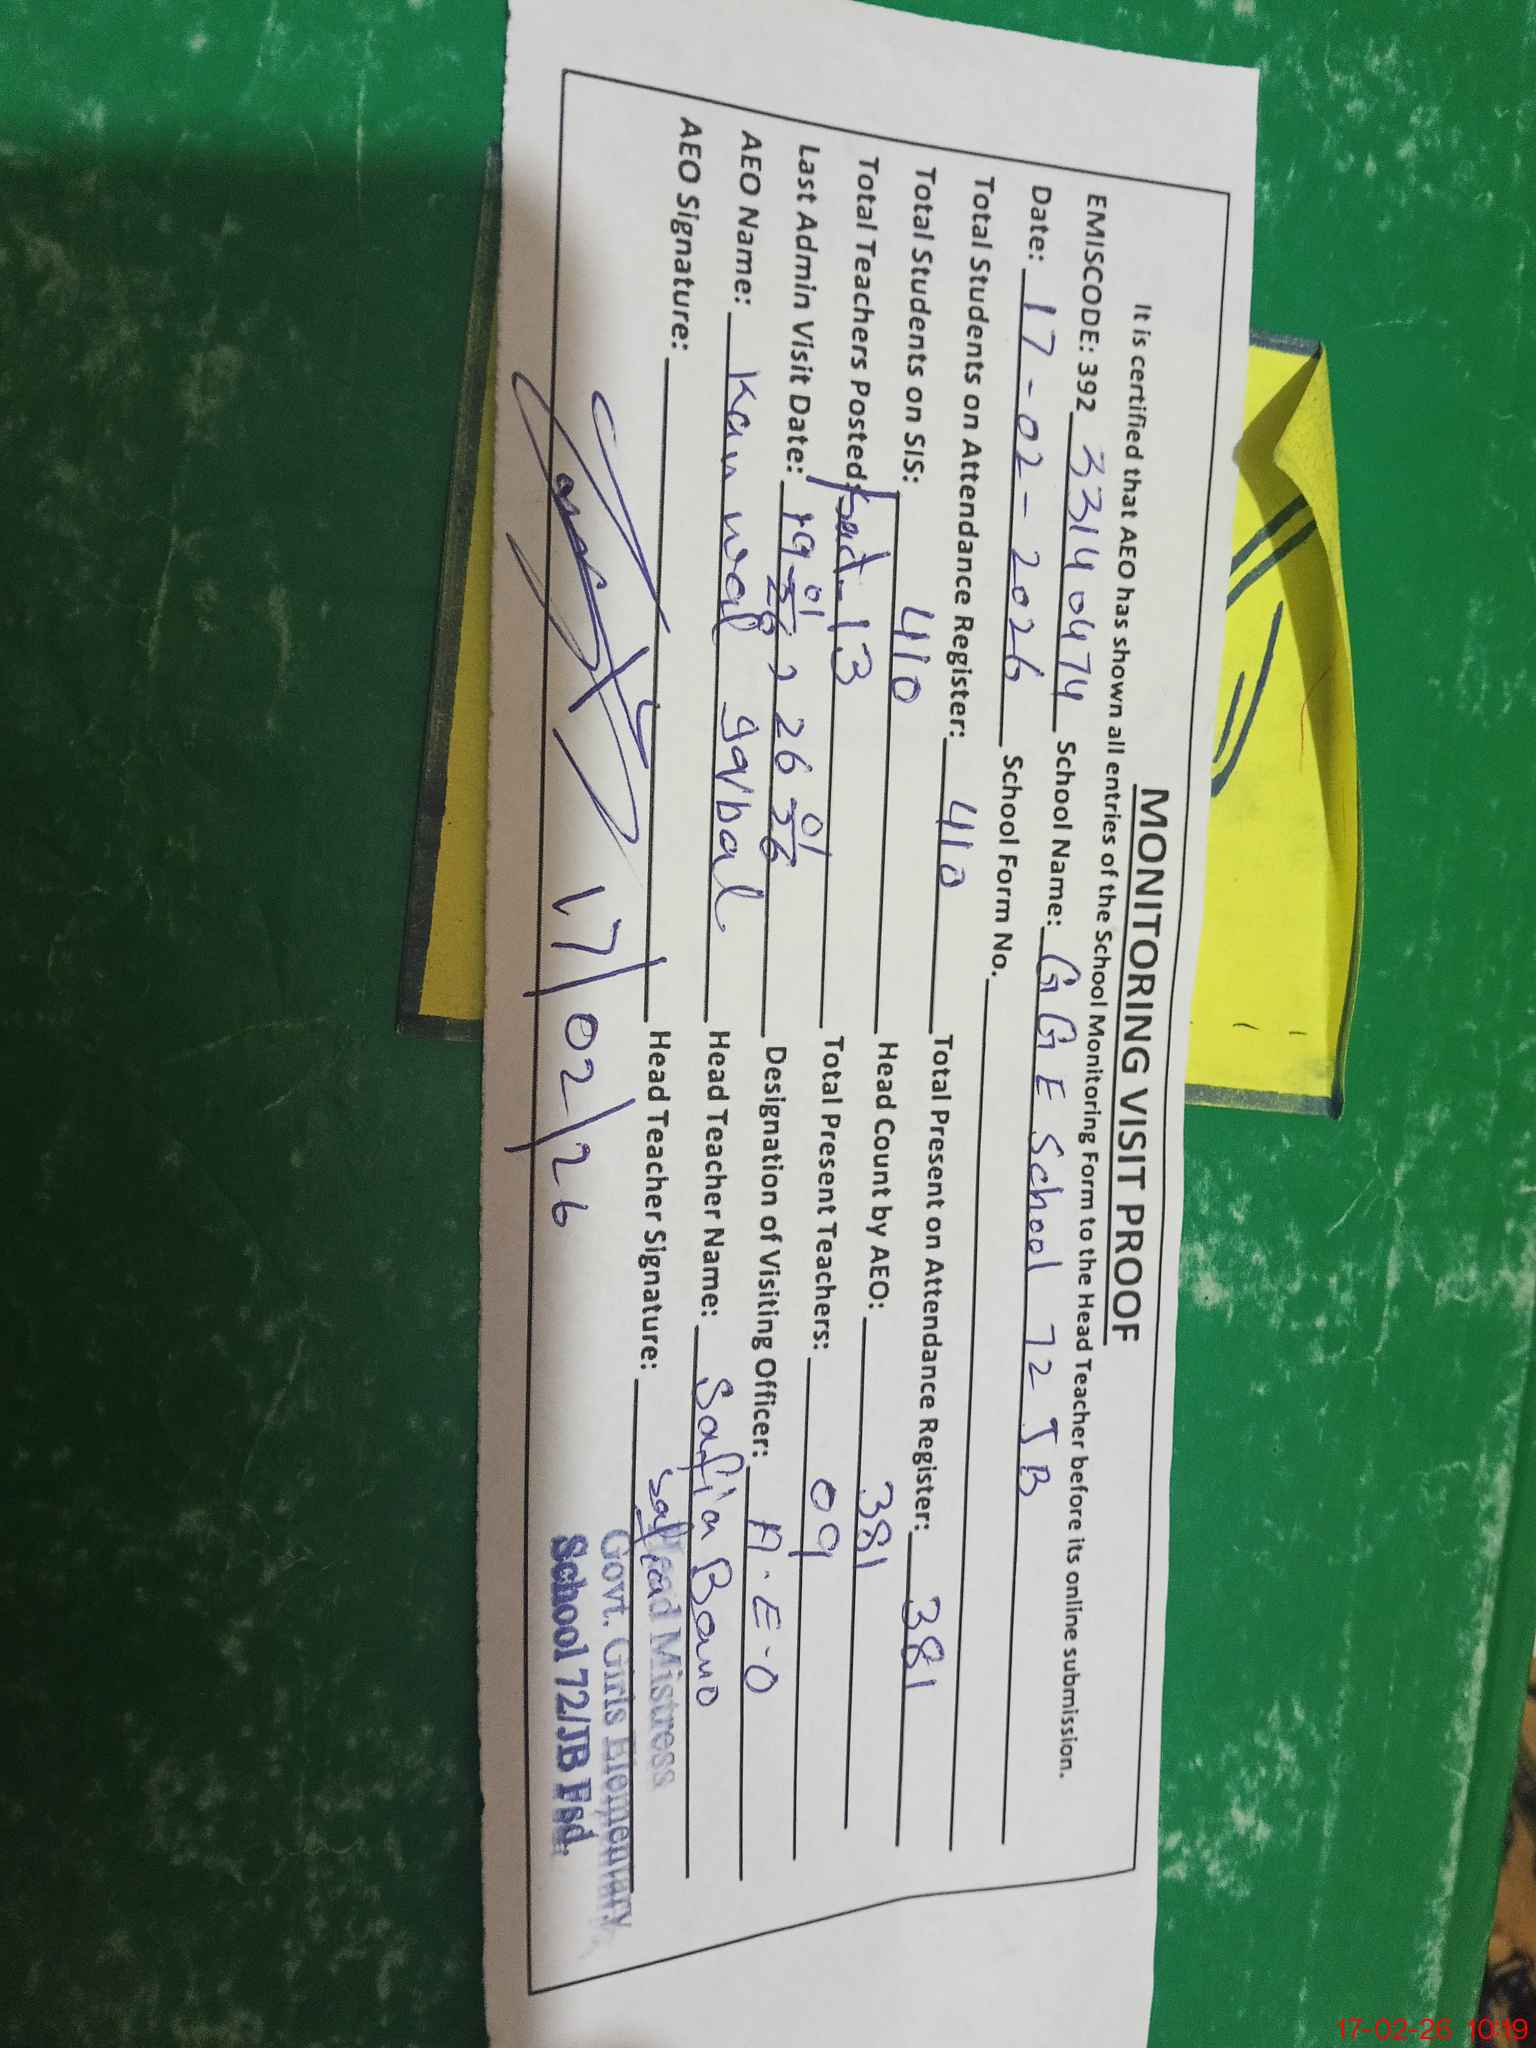 MONITORING VISIT PROOF
It is certified that AEO has shown all entries of the School Monitoring Form to the Head Teacher before its online submission.
EMISCODE: 392 33140474 School Name: GGE School 72 JB
Date: 17-02-2026 School Form No.
Total Students on Attendance Register: 410 Total Present on Attendance Register: 381
Total Students on SIS: 410 Head Count by AEO: 381
Total Teachers Posted: 13 Total Present Teachers: 09
Last Admin Visit Date: Designation of Visiting Officer: A.E.O
AEO Name: Kanwal Iqbal Head Teacher Name: Safia Bano
AEO Signature: Head Teacher Signature: Safia
17/02/26
Head Mistress
Govt. Girls Elementary
School 72/JB Fsd.
17-02-26 10:19